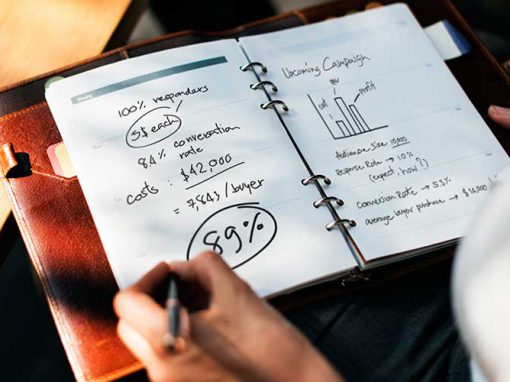 100% responders
$5 each
84% conversation
rate
costs : $42,000
= 7,843/buyer
89%
Upcoming Campaign
profit
Audience size 10,000
Response Rate → 10%
(expect, how?)
conversion Rate →
average buyer purchase →